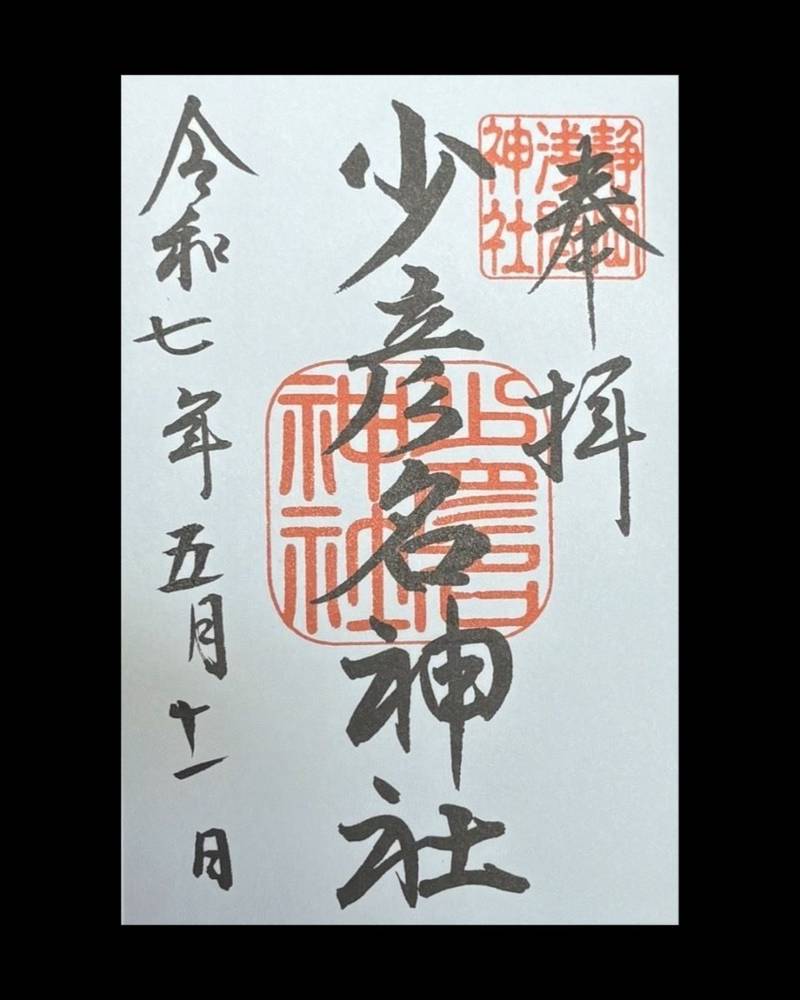 奉拝
静岡
浅間
神社
少彦名神社
少彦名
神社
令和七年五月十一日